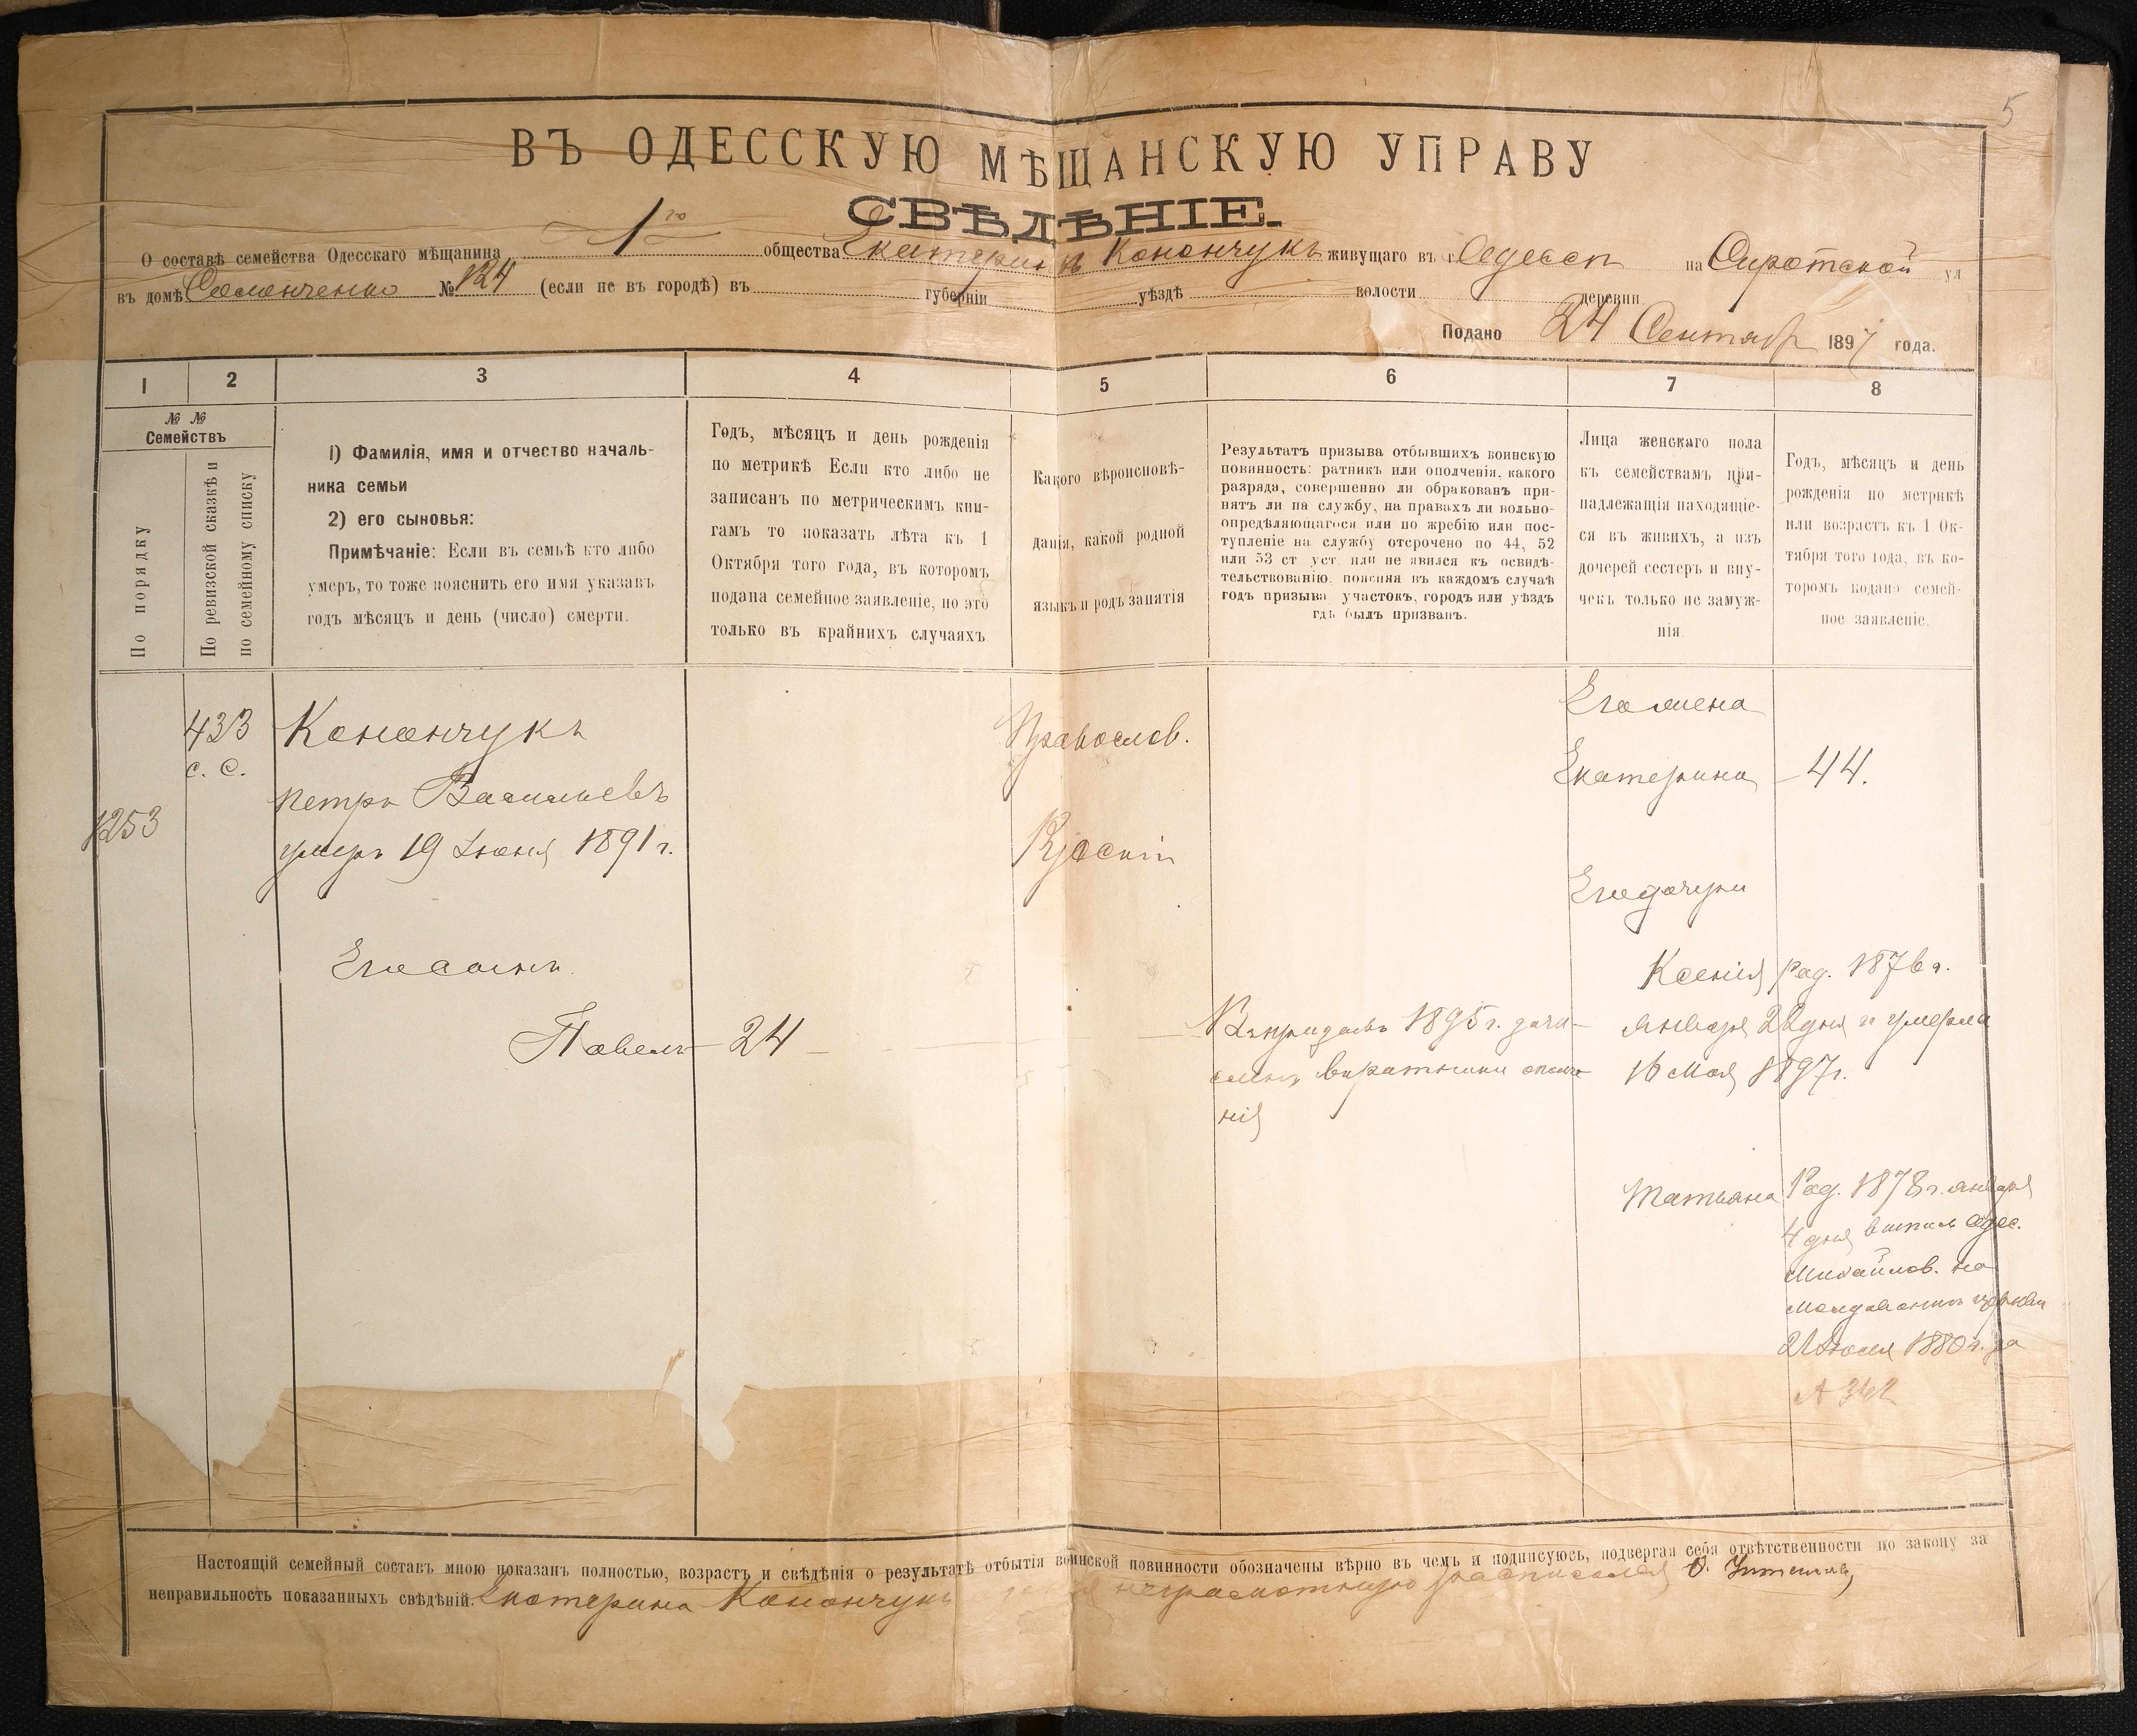 5
ВЪ ОДЕССКУЮ МѢЩАНСКУЮ УПРАВУ
СВѢДѢНІЕ.
О составѣ семейства Одесскаго мѣщанина 1го общества Екатерины Конончукъ живущаго въ г. Одессѣ на Сиротской ул
въ домѣ № 124 (если не въ городѣ) въ губерніи уѣздѣ волости деревни
Подано 24 Сентябр 1897 года.
1 2 3 4 5 6 7 8
№ №
Семействъ
По порядку
По ревизской сказкѣ и
по семейному списку
1) Фамилія, имя и отчество началь-
ника семьи
2) его сыновья:
Примѣчаніе: Если въ семьѣ кто либо
умеръ, то тоже пояснить его имя указавъ
годъ мѣсяцъ и день (число) смерти.
Годъ, мѣсяцъ и день рожденія
по метрикѣ Если кто либо не
записанъ по метрическимъ кни-
гамъ то показать лѣта къ 1
Октября того года, въ которомъ
подана семейное заявленіе, но это
только въ крайнихъ случаяхъ
Какого вѣроисповѣ-
данія, какой родной
языкъ и родъ занятія
Результатъ призыва отбывшихъ воинскую
повинность: ратникъ или ополченія, какого
разряда, совершенно ли обракованъ при-
нятъ ли на службу, на правахъ ли вольно-
опредѣляющагося или по жребію или пос-
тупленіе на службу отсрочено по 44, 52
или 53 ст уст или не явился къ освидѣ-
тельствованію, поясняя въ каждомъ случаѣ
годъ призыва участокъ, городъ или уѣздъ
гдѣ былъ призванъ.
Лица женскаго пола
къ семействамъ при-
надлежащія находящіе-
ся въ живихъ, а изъ
дочерей сестеръ и вну-
чекъ только не замуж-
нія.
Годъ, мѣсяцъ и день
рожденія по метрикѣ
или возрастъ къ 1 Ок-
тября того года, въ ко-
торомъ подано семей-
ное заявленіе.
433
с. с.
1253
Конончукъ
Петръ Васильевъ
умеръ 19 Іюня 1891 г.
Его сынъ
Павелъ – 24 –
Православ.
Русскій
Въ призывъ 1895 г. зачи-
сленъ въ ратники ополче
нія
Его жена
Екатерина – 44.
Его дочери
Ксенія род. 1876 г.
Января 22 дня и умерла
16 Мая 1897 г.
Татьяна Род. 1878 г. января
4 дня выпись Одес.
Михайлов. на
Молдаванкѣ церкви
21 Іюля 1880 г. за
№ 342
Настоящій семейный составъ мною показанъ полностью, возрастъ и свѣдѣнія о результатѣ отбытія воинской повинности обозначены вѣрно въ чемъ и подписуюсь, подвергая себя отвѣтственности по закону за
неправильность показанныхъ свѣдѣній. Екатерина Конончукъ неграмотную расписался